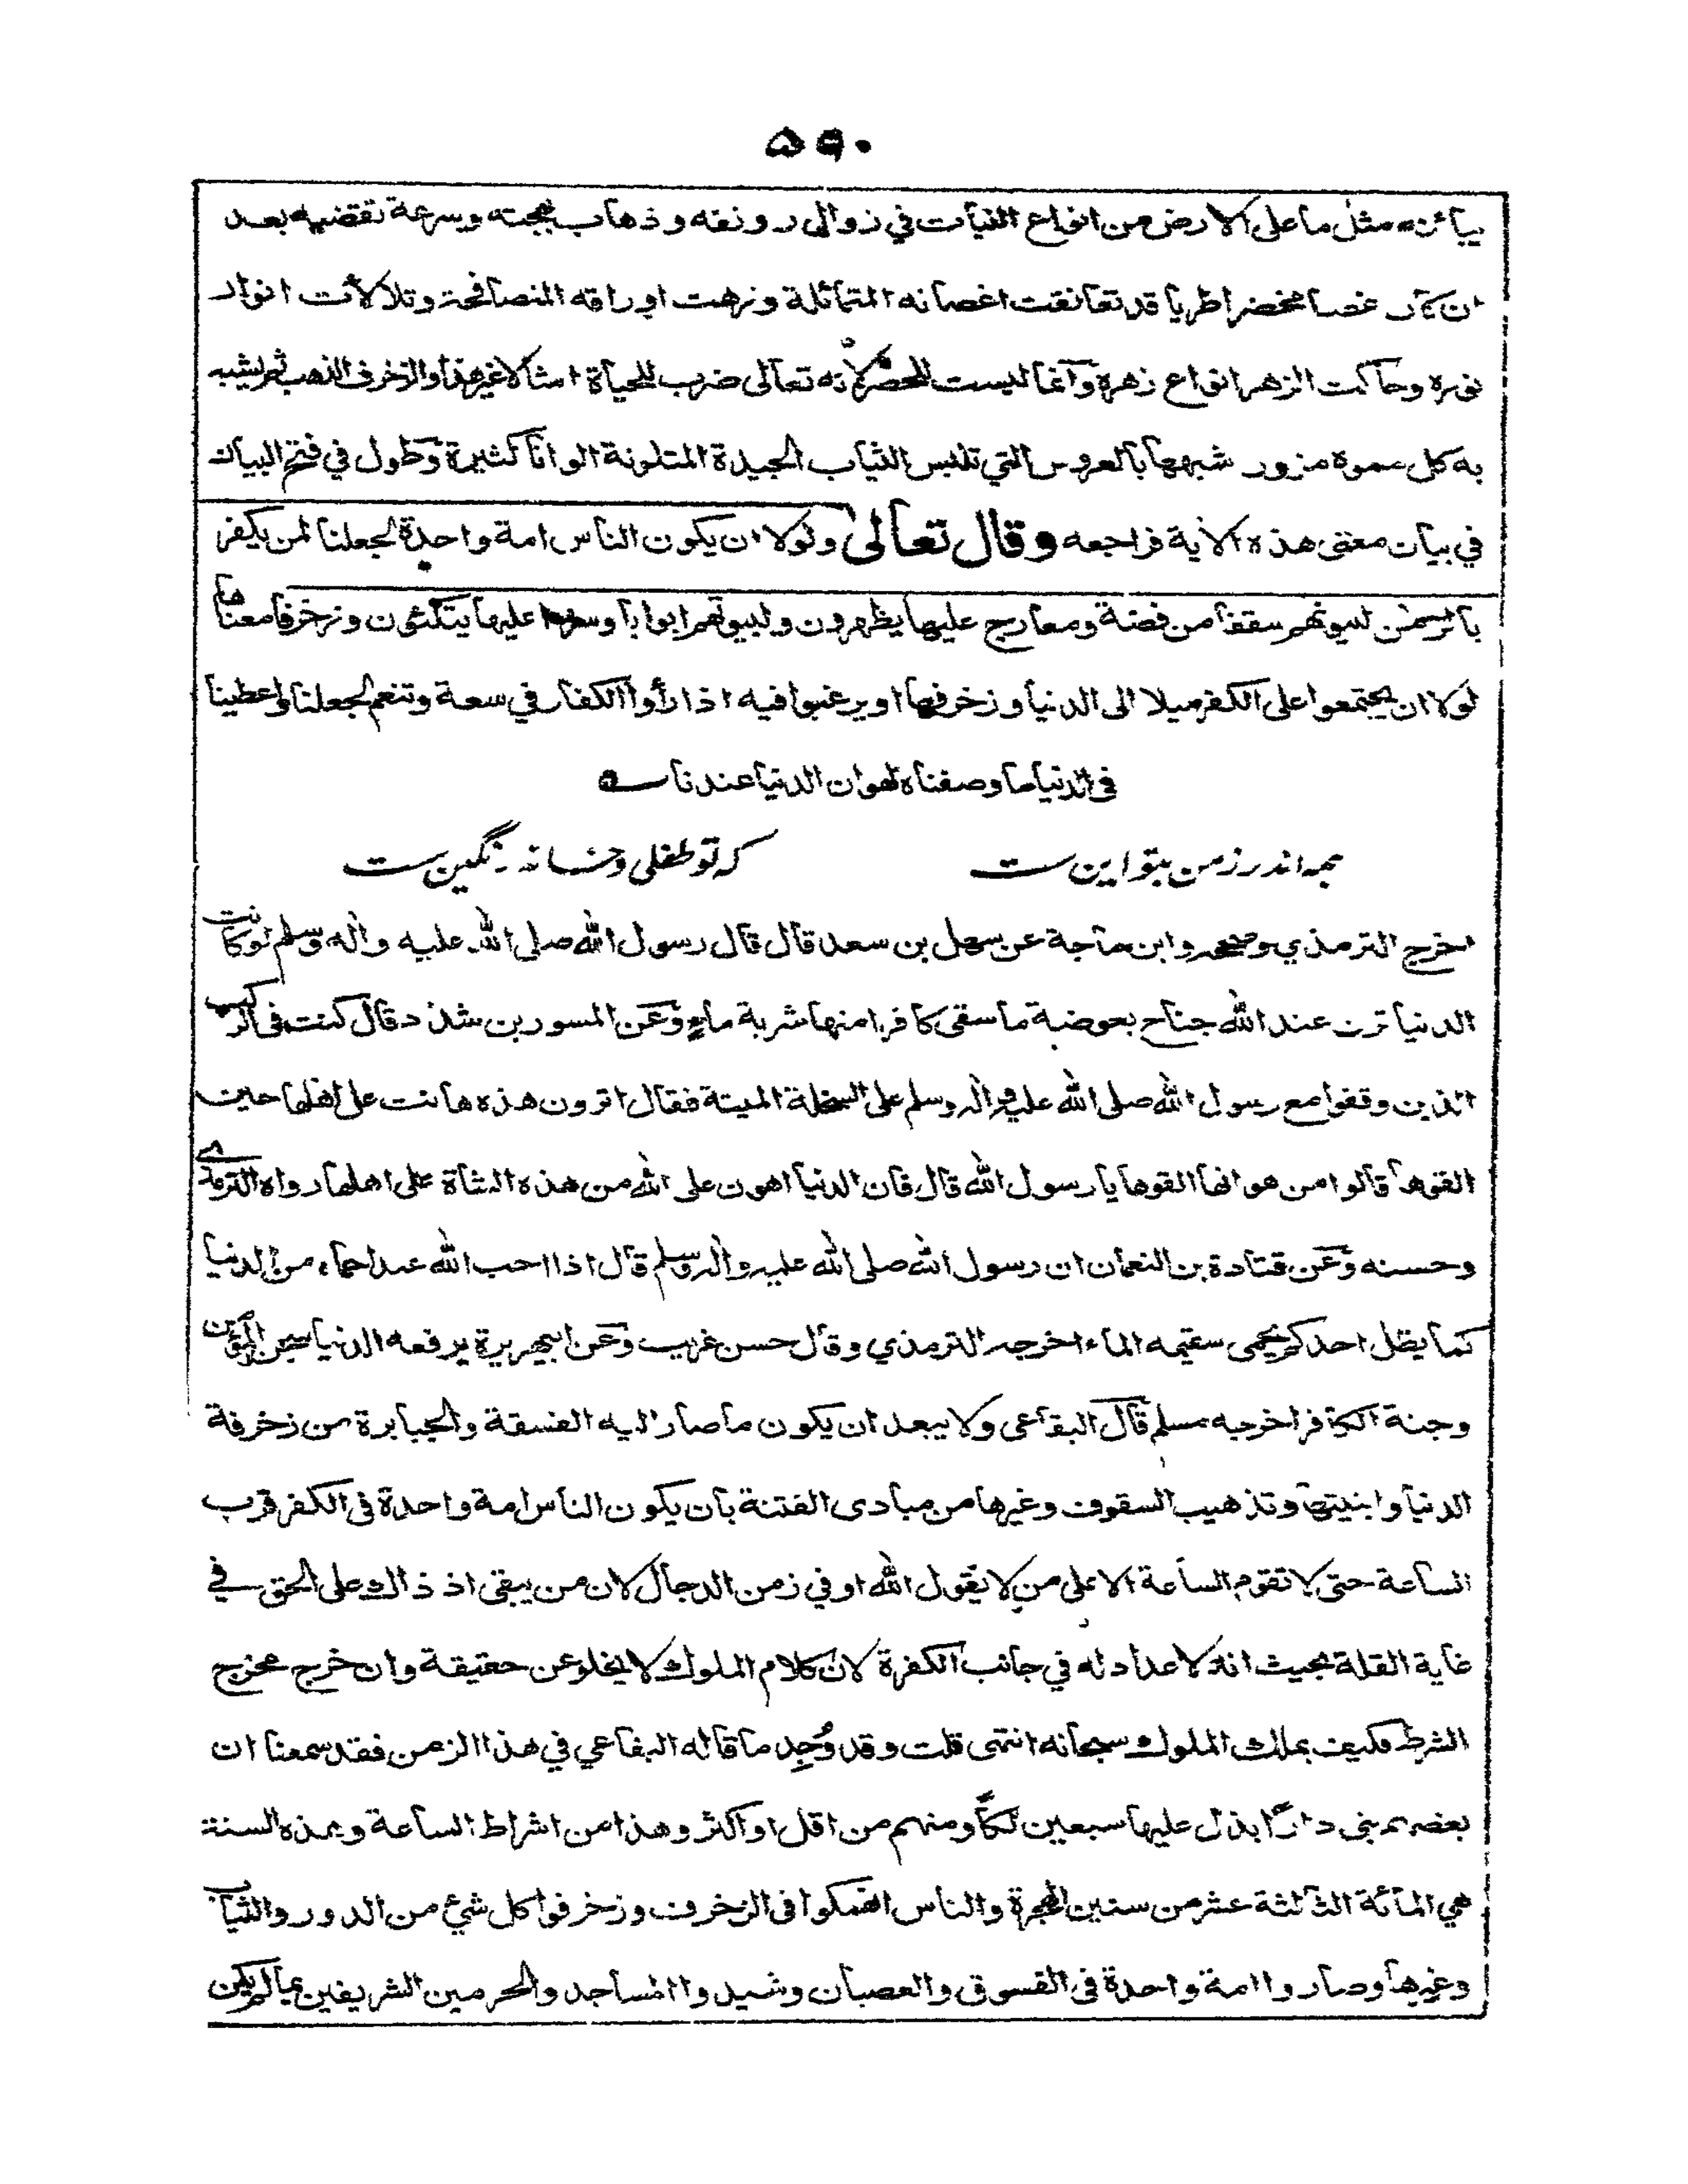 ۵۹۰
مثل ما على الارض من انواع النبات في زوال رونقه وذهاب بهجته وسرعة تقضيه بعد
ان كان غضا مخضرا طريا قد تعانقت اغصانه المتمائلة وزهت اوراقه المتصافحة وتلألأت انوار
نوره وحاكت الزهر انواع زهره وآنما ليست للحصر لانه تعالى ضرب للحياة امثالا غير هذا والزخرف الذهب ثم يشبه
به كل مموه مزور شبهها بالعروس التي تلبس الثياب الجيدة المتلونة الوانا كثيرة وطول في فتح البيان
في بيان معنى هذه الآية فراجعه وقال تعالى ولولا ان يكون الناس امة واحدة لجعلنا لمن يكفر
بالرحمن لبيوتهم سقفا من فضة ومعارج عليها يظهرون ولبيوتهم ابوابا وسررا عليها يتكئون وزخرفا معناها
لولا ان يجتمعوا على الكفر ميلا الى الدنيا وزخرفها او يرغبوا فيه اذا رأوا الكفار في سعة وتنعم لجعلنا واعطينا
في الدنيا ما وصفناه لهوان الدنيا عندنا
همه اندرز من بتو این ست که تو طفلی و خانه رنگین ست
اخرج الترمذي وصححه وابن ماجة عن سهل بن سعد قال قال رسول الله صلى الله عليه واله وسلم لو كانت
الدنيا تزن عند الله جناح بعوضة ما سقى كافرا منها شربة ماء وعن المسور بن شداد قال كنت في الركب
الذين وقفوا مع رسول الله صلى الله عليه واله وسلم على السخلة الميتة فقال اترون هذه هانت على اهلها حين
القوها قالوا من هوانها القوها يا رسول الله قال فان الدنيا اهون على الله من هذه الشاة على اهلها رواه الترمذي
وحسنه وعن قتادة بن النعمان ان رسول الله صلى الله عليه واله وسلم قال اذا احب الله عبدا حماه من الدنيا
كما يظل احدكم يحمى سقيمه الماء اخرجه الترمذي وقال حسن غريب وعن ابي هريرة يرفعه الدنيا سجن المؤمن
وجنة الكافر اخرجه مسلم قال البقاعي ولا يبعد ان يكون ما صار اليه الفسقة والجبابرة من زخرفة
الدنيا وابنيتها وتذهيب السقوف وغيرها من مبادى الفتنة بان يكون الناس امة واحدة في الكفر قرب
الساعة حتى لا تقوم الساعة الا على من لا يقول الله او في زمن الدجال لان من يبقى اذ ذاك على الحق في
غاية القلة بحيث انه لا عداد له في جانب الكفرة لان كلام الملوك لا يخلو عن حقيقة وان خرج مخرج
الشرط فكيف بملك الملوك سبحانه انتهى قلت وقد وُجِد ما قاله البقاعي في هذا الزمن فقد سمعنا ان
بعضهم بنى دارًا بذل عليها سبعين لكًا ومنهم من اقل او اكثر وهذا من اشراط الساعة وهذه السنة
هي المائة الثالثة عشر من سنين الهجرة والناس انهمكوا في الزخرف وزخرفوا كل شئ من الدور والثياب
وغيرها وصاروا امة واحدة في الفسوق والعصيان وشيدوا المساجد والحرمين الشريفين بما لم يكن